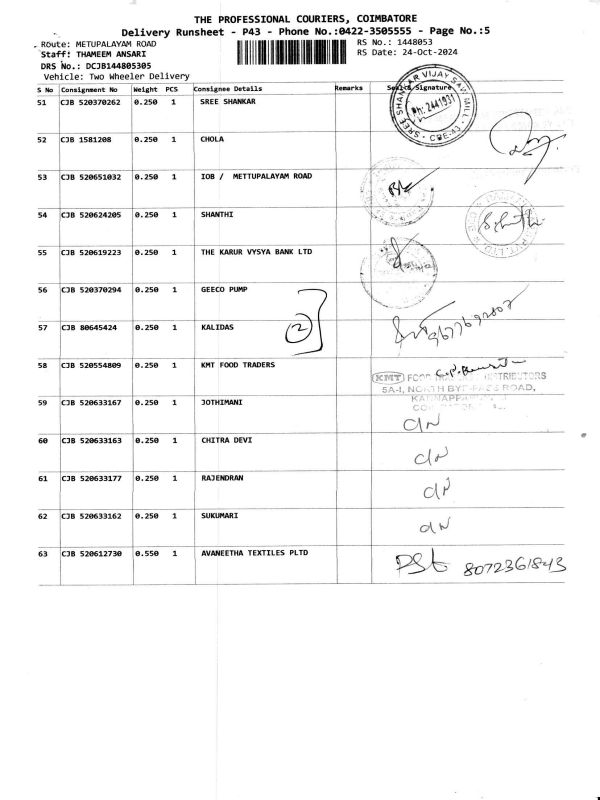 THE PROFESSIONAL COURIERS, COIMBATORE
Delivery Runsheet - P43 - Phone No.:0422-3505555 - Page No.:5
Route: METUPALAYAM ROAD RS No.: 1448053
Staff: THAMEEM ANSARI RS Date: 24-Oct-2024
DRS No.: DCJB144805305
Vehicle: Two Wheeler Delivery
S No Consignment No Weight PCS Consignee Details Remarks Seal & Signature
51 CJB 520370262 0.250 1 SREE SHANKAR
SREE SHANKAR VIJAY SAW MILL
Ph: 2441931
CBE-43
52 CJB 1581208 0.250 1 CHOLA
53 CJB 520651032 0.250 1 IOB / METTUPALAYAM ROAD
54 CJB 520624205 0.250 1 SHANTHI
55 CJB 520619223 0.250 1 THE KARUR VYSYA BANK LTD
56 CJB 520370294 0.250 1 GEECO PUMP
57 CJB 80645424 0.250 1 KALIDAS
2
58 CJB 520554809 0.250 1 KMT FOOD TRADERS
KMT FOOD DISTRIBUTORS
5A-I, NORTH BYE-PASS ROAD,
59 CJB 520633167 0.250 1 JOTHIMANI C/N
60 CJB 520633163 0.250 1 CHITRA DEVI C/N
61 CJB 520633177 0.250 1 RAJENDRAN C/N
62 CJB 520633162 0.250 1 SUKUMARI C/N
63 CJB 520612730 0.550 1 AVANEETHA TEXTILES PLTD 8072361843